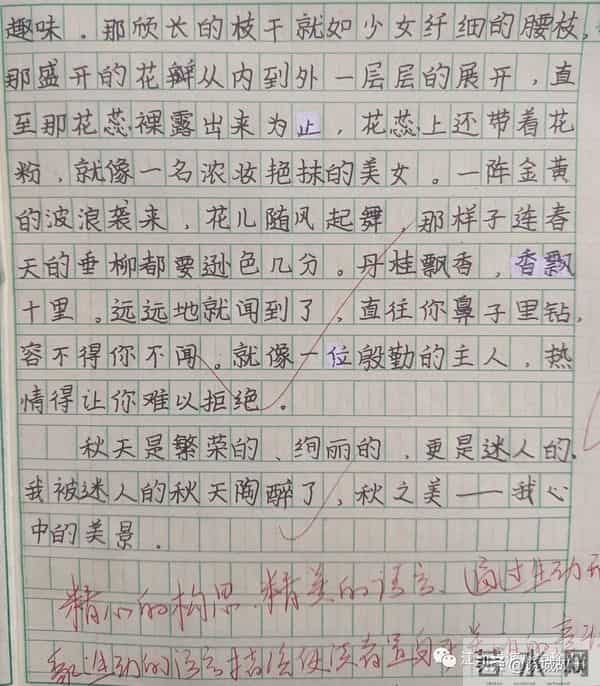 趣味．那颀长的枝干就如少女纤细的腰枝，
那盛开的花瓣从内到外一层层的展开，直
至那花蕊裸露出来为止，花蕊上还带着花
粉，就像一名浓妆艳抹的美女。一阵金黄
的波浪袭来，花儿随风起舞，那样子连春
天的垂柳都要逊色几分。丹桂飘香，香飘
十里。远远地就闻到了，直往你鼻子里钻，
容不得你不闻。就像一位殷勤的主人，热
情得让你难以拒绝．
秋天是繁荣的、绚丽的，更是迷人的．
我被迷人的秋天陶醉了，秋之美——我心
中的美景．
精心的构思、精美的语言、通过生动形
生动的语言描绘使读者置身